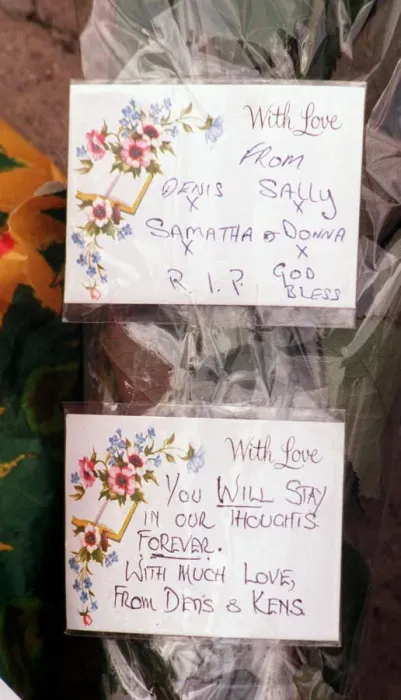 With Love
FROM
DENIS SALLY
X X
SAMATHA & DONNA
X X
R. I. P. GOD
BLESS
With Love
YOU WILL STAY
IN OUR THOUGHTS
FOREVER.
WITH MUCH LOVE,
FROM DEN'S & KENS.